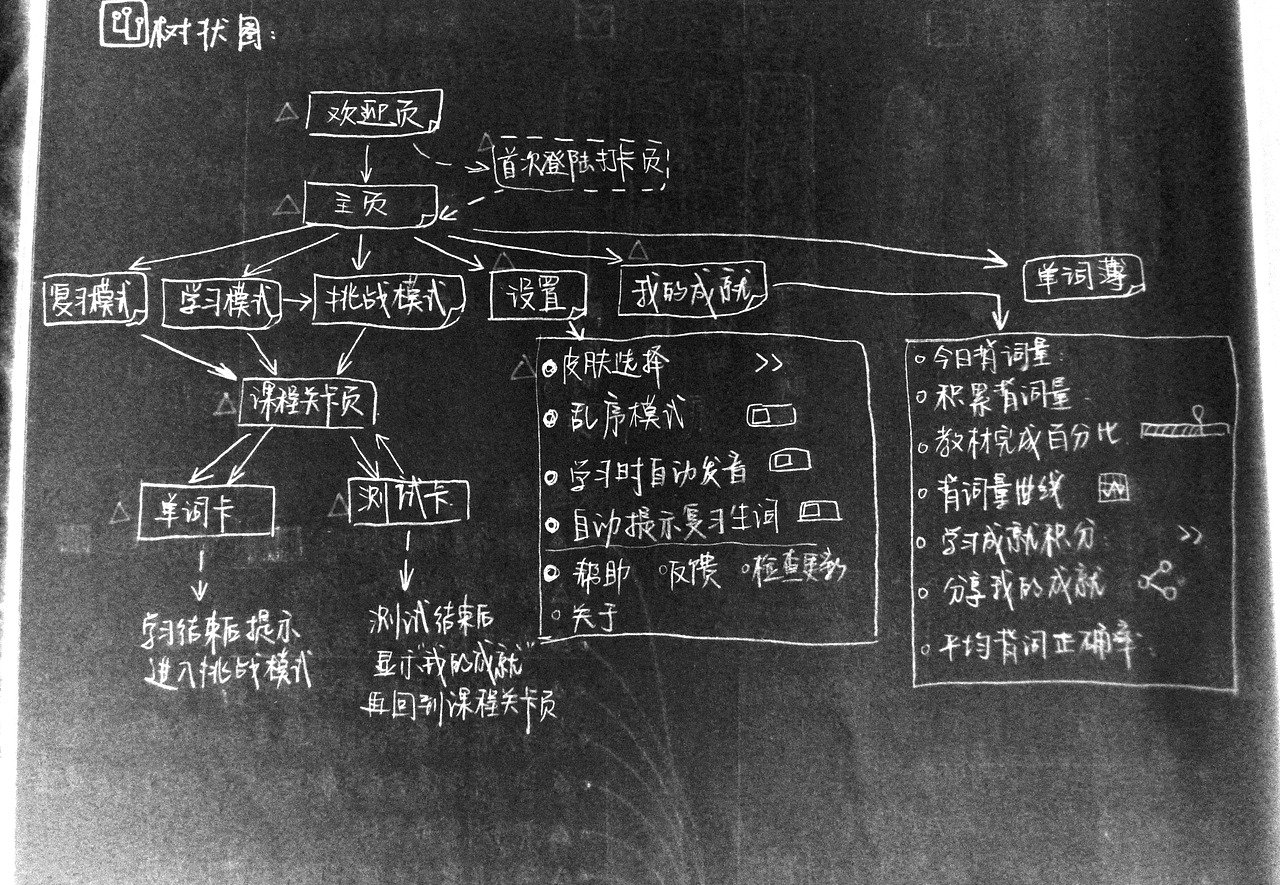 树状图:
欢迎页
首次登陆打卡页
主页
复习模式
学习模式
挑战模式
设置
我的成就
单词薄
课程关卡页
单词卡
测试卡
学习结束后提示
进入挑战模式
测试结束后
显示"我的成就"
再回到课程关卡页
皮肤选择 >>
乱序模式
学习时自动发音
自动提示复习生词
帮助 反馈 检查更新
关于
今日背词量:
积累背词量:
教材完成百分比
背词量曲线
学习成就积分: >>
分享我的成就
平均背词正确率: